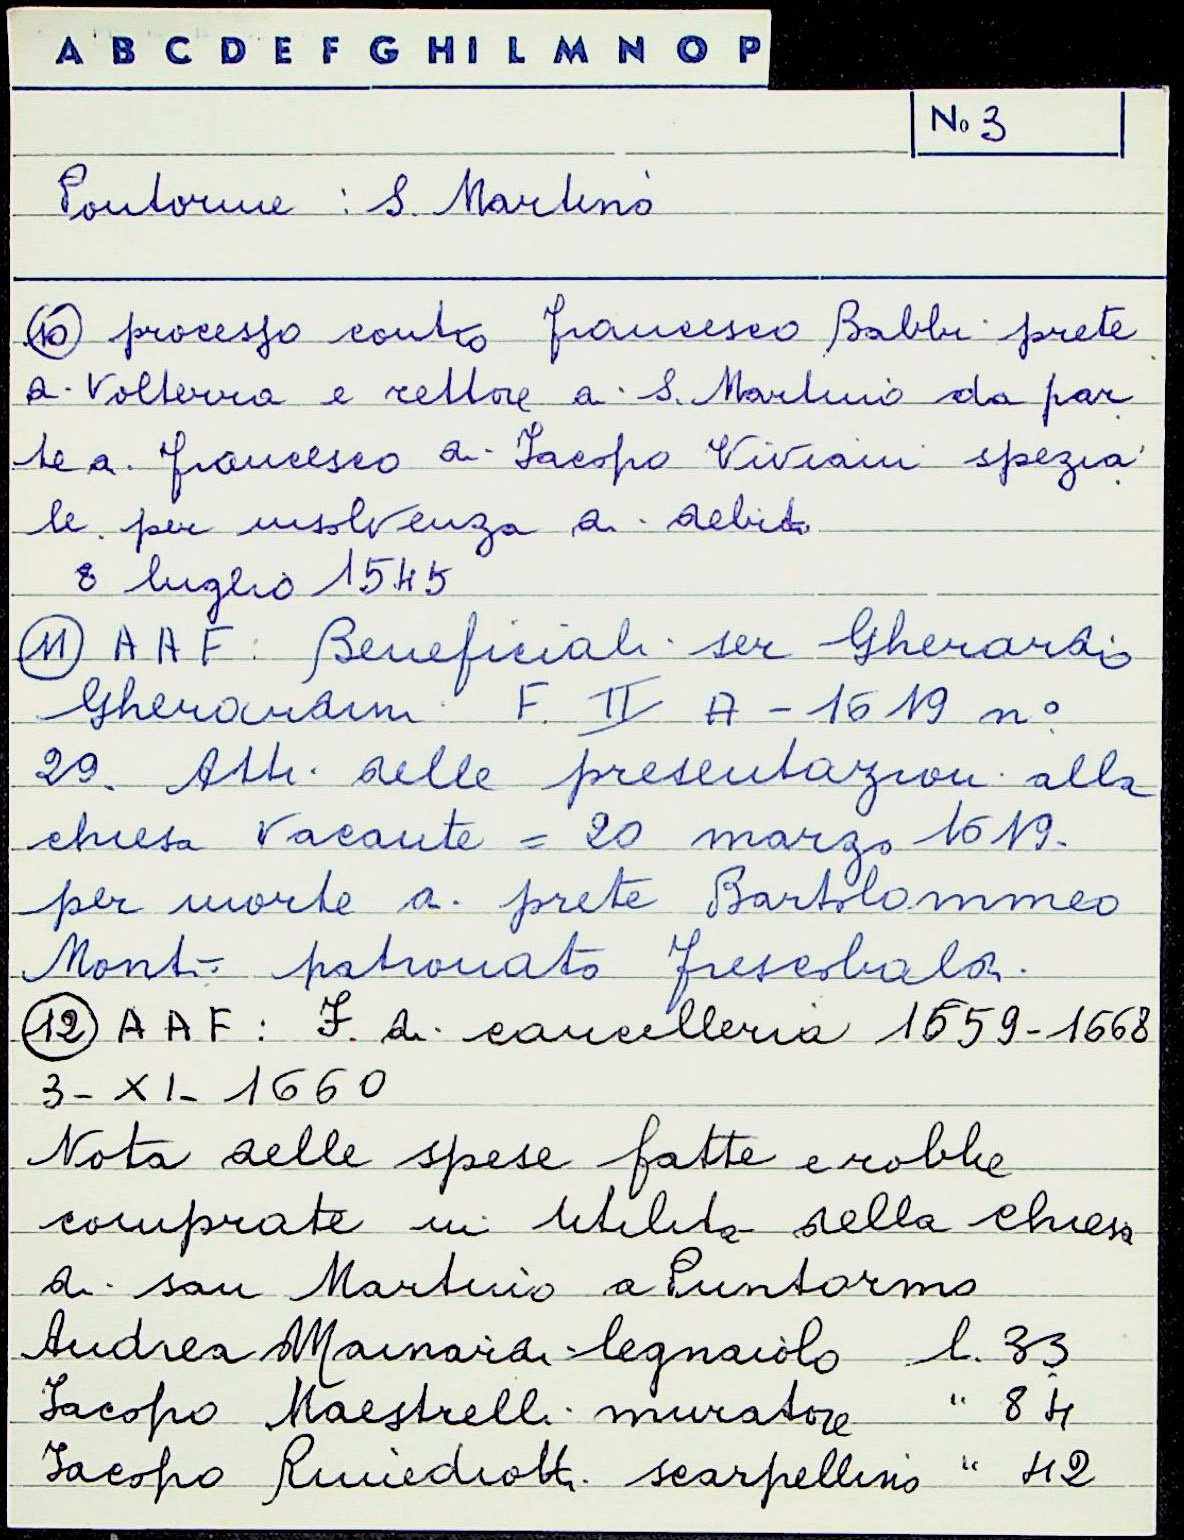 A B C D E F G H I L M N O P
No 3
Pontorme : S. Martino
(10) processo contro Francesco Babbi prete
di Volterra e rettore di S. Martino da par
te di Francesco di Jacopo Viviani spezia
le per insolvenza di debito
8 luglio 1545
(11) A A F : Beneficiali ser Gherardo
Gherardini F. II A - 1619 n°
29. Atti delle presentazioni alla
chiesa vacante = 20 marzo 1619.
per morte di prete Bartolommeo
Monti = patronato Frescobaldi.
(12) A A F : F. di cancelleria 1659-1668
3 - XI - 1660
Nota delle spese fatte e robbe
comprate in utilità della chiesa
di san Martino a Puntormo
Andrea Mainardi legnaiolo l. 33
Jacopo Maestrelli muratore " 84
Jacopo scarpellino " 42